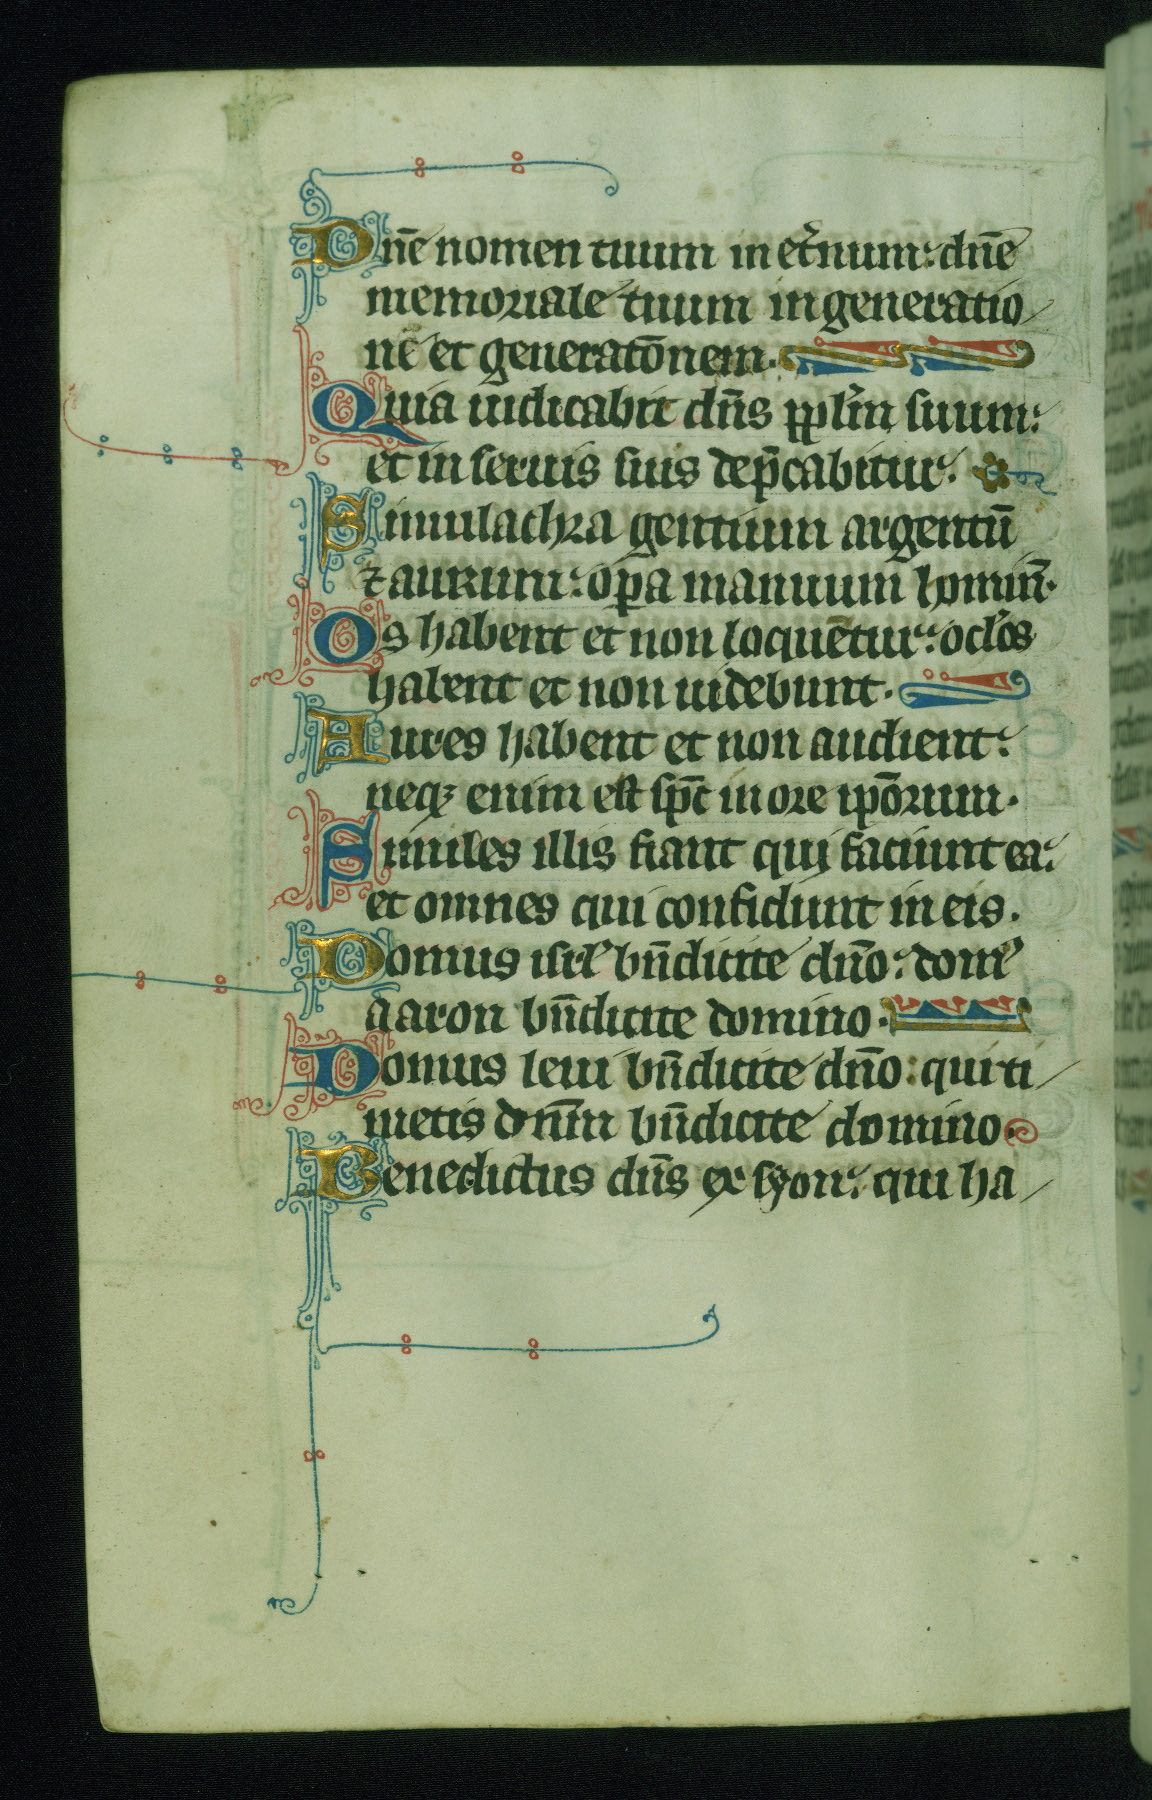 Dn̄e nomen tuum in et̾num: dn̄e
memoriale tuum in generatio
nē et generatōnem.
Quia iudicabit dn̄s pplm̄ suum:
et in seruis suis dep̄cabitur.
Simulachra gentium argentū
⁊ aurum: oꝑa manuum homin̄.
Os habent et non loquētur: oclōs
habent et non uidebunt.
Aures habent et non audient:
neqꝫ enim est sp̄c in ore ip̄orum.
Similes illis fiant qui faciunt ea:
et omnes qui confidunt in eis.
Domus isrl̄ bn̄dicite dn̄o: dom̾
aaron bn̄dicite domino.
Domus leui bn̄dicite dn̄o: qui ti
metis dn̄m bn̄dicite domino.
Benedictus dn̄s ex syon: qui ha